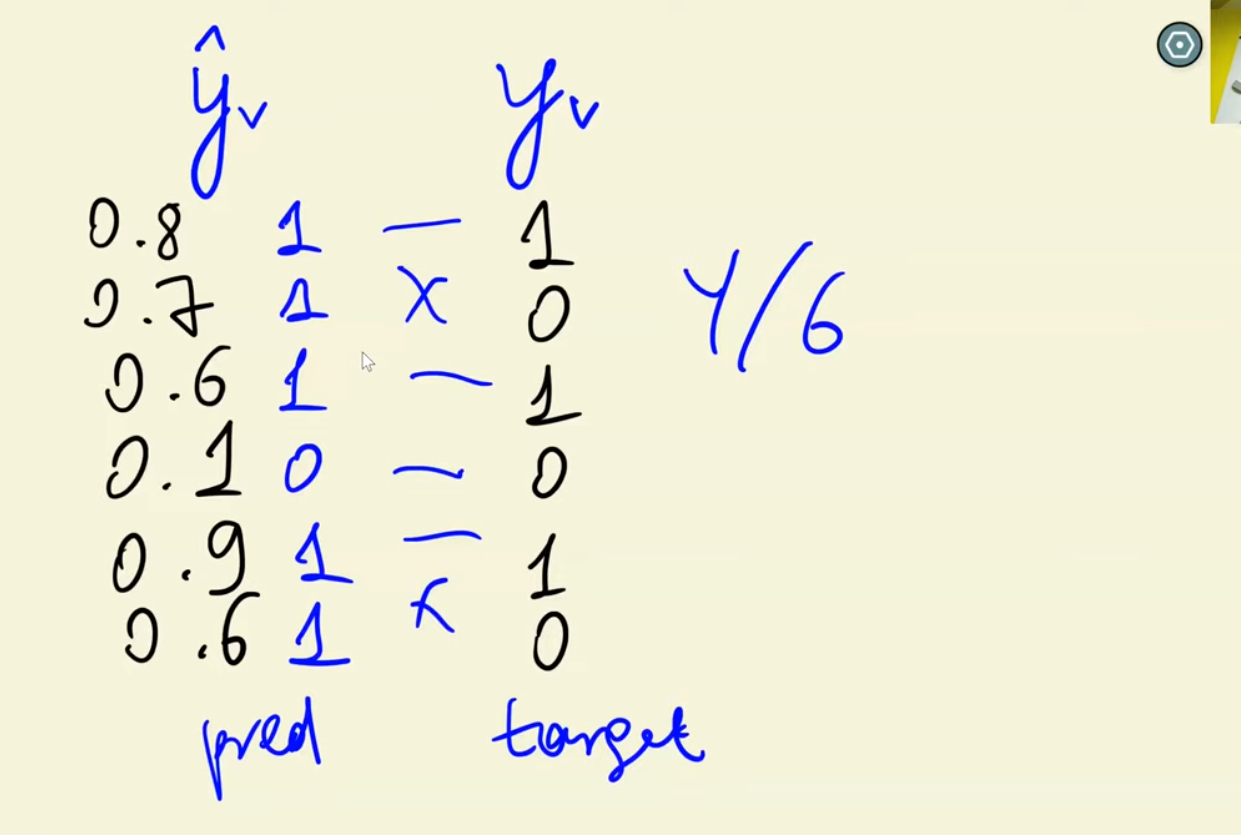 ŷv yv
0.8 1 — 1
0.7 1 x 0 4/6
0.6 1 — 1
0.1 0 — 0
0.9 1 — 1
0.6 1 x 0
pred target